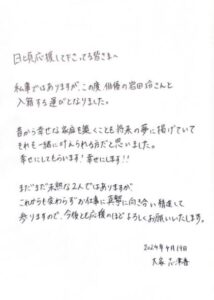 日頃応援して下さってる皆さまへ
私事ではありますが、この度 俳優の岩田玲さんと
入籍する運びとなりました。
昔から幸せな家庭を築くことも将来の夢に掲げていて
それを一緒に叶えられる方だと思いました。
幸せにしてもらいます!幸せにします!!
まだまだ未熟な2人ではありますが、
これからも変わらずお仕事に真摯に向き合い精進して
参りますので、今後とも応援のほどよろしくお願いいたします。
2024年4月19日